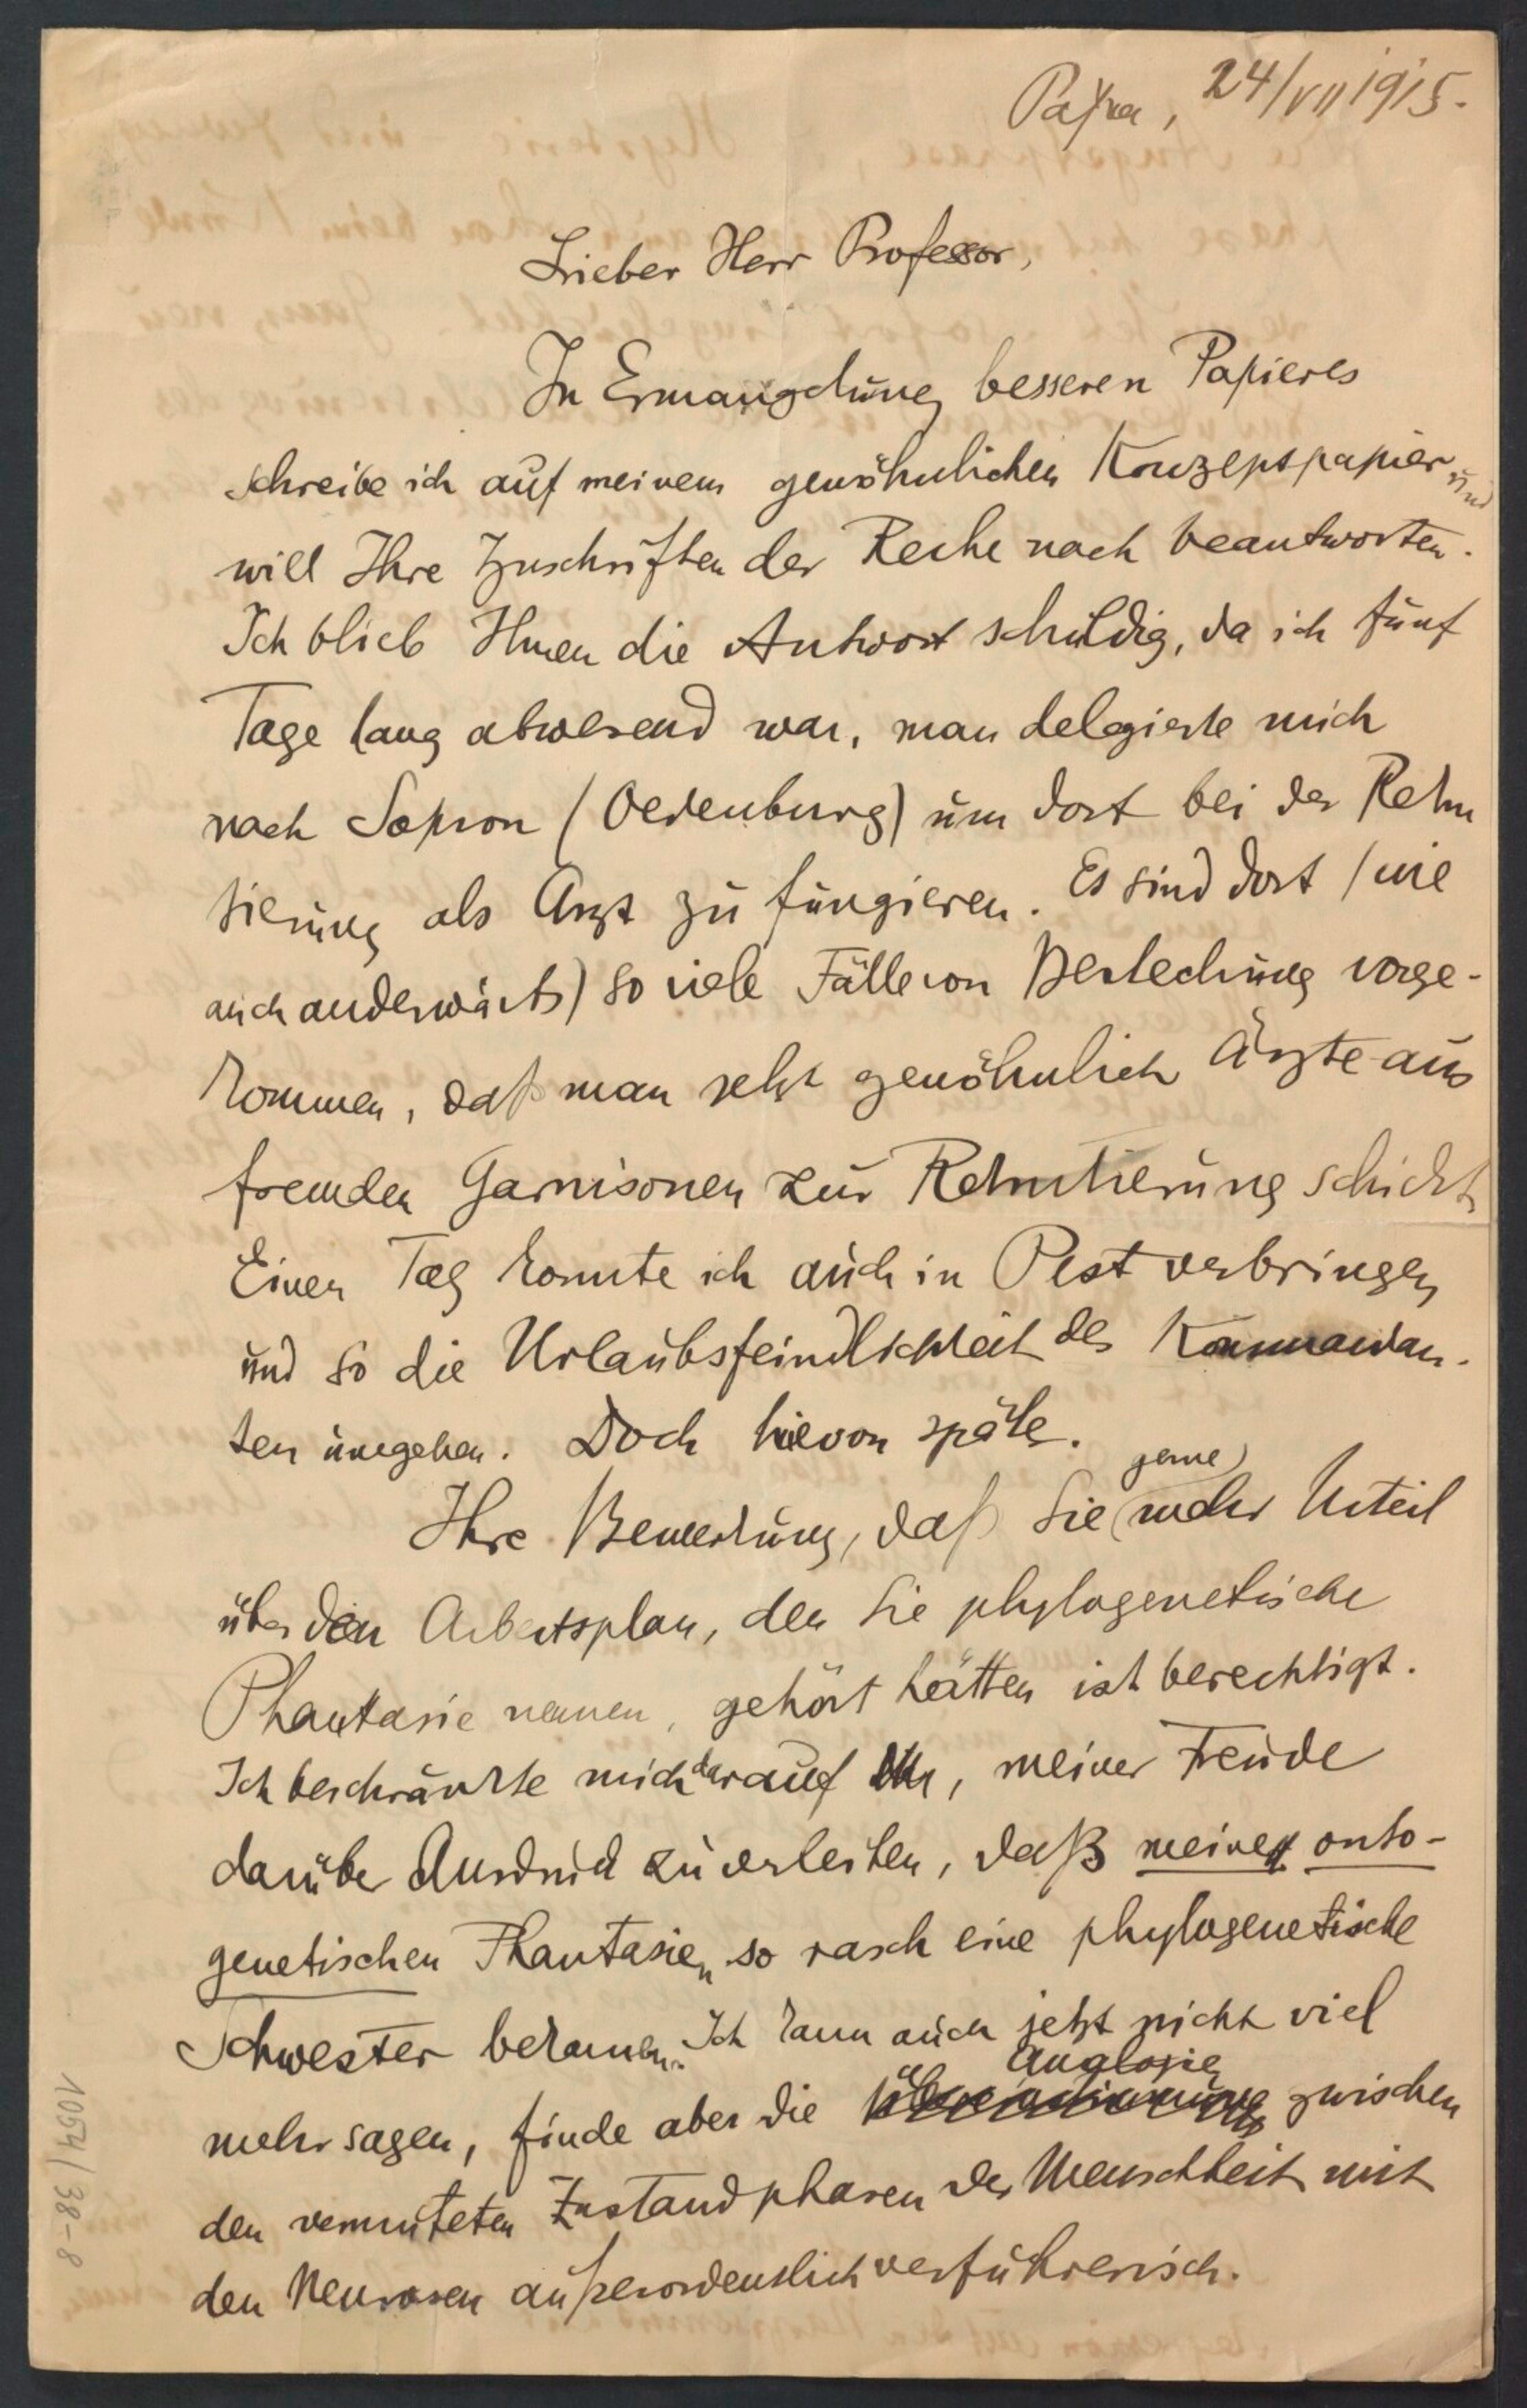 Pápa, 24/VII 1915.
Lieber Herr Professor,
In Ermangelung besseren Papieres
schreibe ich auf meinem gewöhnlichen Konzeptpapier und
will Ihre Zuschriften der Reihe nach beantworten.
Ich blieb Ihnen die Antwort schuldig, da ich fünf
Tage lang abwesend war, man delegierte mich
nach Sopron (Oedenburg) um dort bei der Rekru
tierung als Arzt zu fungieren. Es sind dort (wie
auch anderwärts) so viele Fälle von Bestechung vorge-
kommen, daß man jetzt gewöhnlich Ärzte aus
fremden Garnisonen zur Rekrutierung schickt
Einen Tag konnte ich auch in Pest verbringen
und so die Urlaubsfeindlichkeit des Kommandan-
ten umgehen. Doch hievon später.
Ihre Bemerkung, daß Sie gerne mehr Urteil
über den Arbeitsplan, den Sie phylogenetische
Phantasie nennen, gehört hätten ist berechtigt.
Ich beschränkte mich darauf, meiner Freude
darüber Ausdruck zu verleihen, daß meine onto-
genetischen Phantasien so rasch eine phylogenetische
Schwester bekamen. Ich kann auch jetzt nicht viel
mehr sagen, finde aber die Analogie zwischen
den vermuteten Zustandphasen der Menschheit mit
den Neurosen außerordentlich verführerisch.
1054/38-8